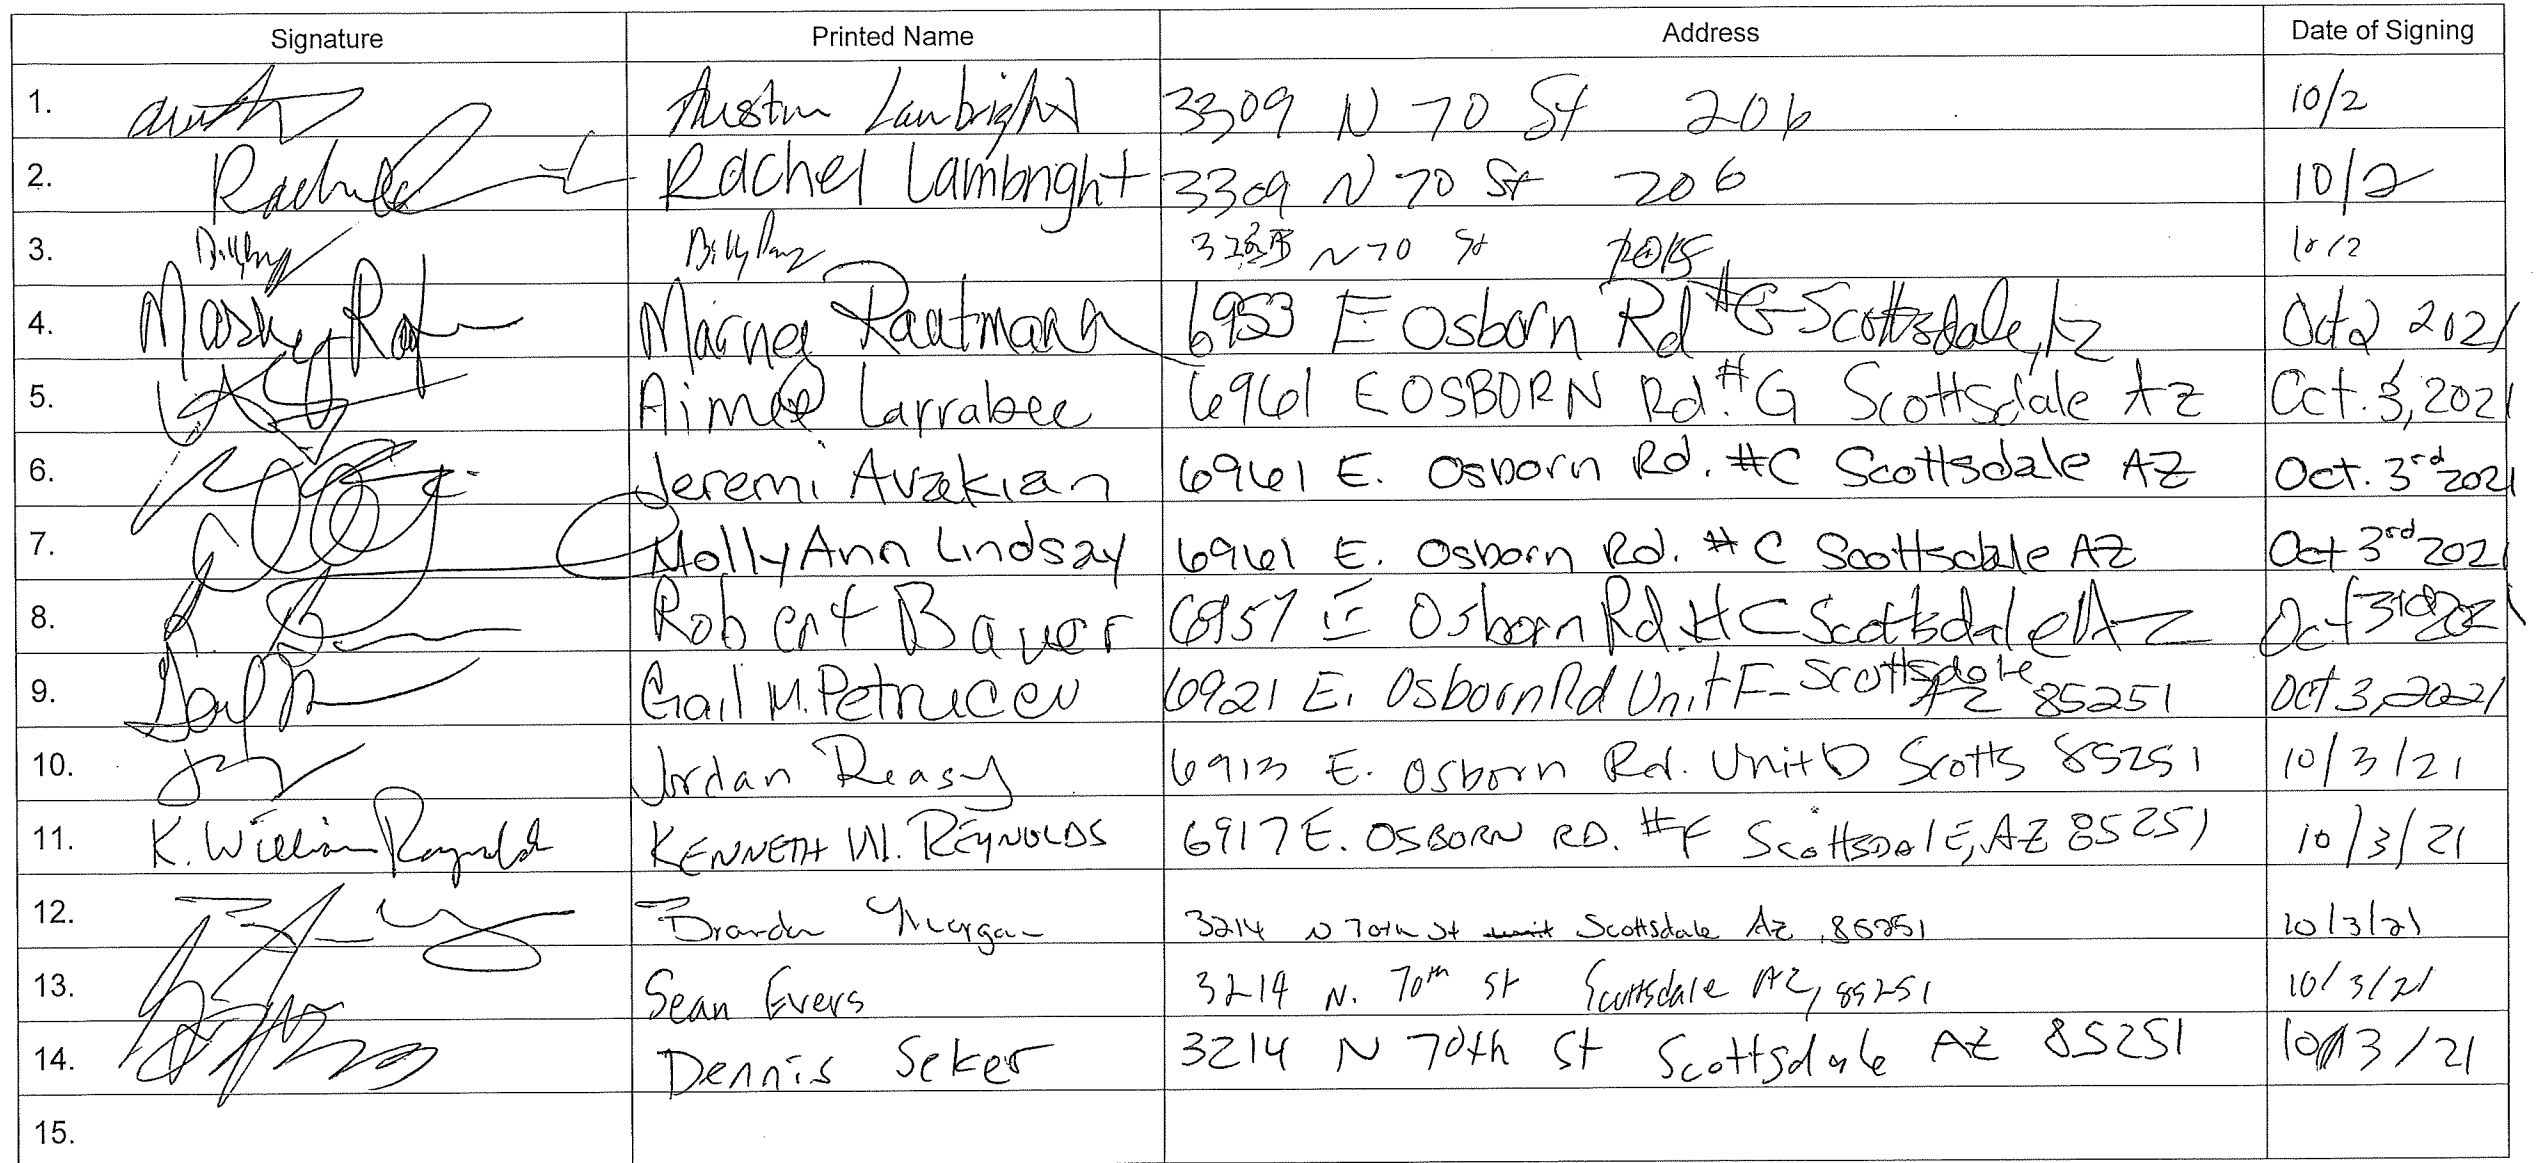 Signature Printed Name Address Date of Signing
1. Austin Lambright 3309 N 70 St 206 10/2
2. Rachel Lambright 3309 N 70 St 206 10/2
3. Billy N 70 St 10/2
4. Marney Raatmann 6953 E Osborn Rd #G Scottsdale, Az Oct 2 2021
5. Aimee Larrabee 6961 E OSBORN Rd. #G Scottsdale Az Oct. 3, 2021
6. Jeremi Avzekian 6961 E. Osborn Rd. #C Scottsdale AZ Oct. 3rd 2021
7. Molly Ann Lindsay 6961 E. Osborn Rd. #C Scottsdale AZ Oct 3rd 2021
8. R. B Robert Bauer 6957 E Osborn Rd #C Scottsdale AZ Oct 3rd 2021
9. Gail M. Petrucci 6921 E. Osborn Rd Unit F- Scottsdale AZ 85251 Oct 3, 2021
10. Jordan Reasy 6913 E. Osborn Rd. Unit D Scotts 85251 10/3/21
11. K. William Reynolds KENNETH W. REYNOLDS 6917 E. OSBORN RD. #F ScottsDalE, AZ 85251 10/3/21
12. Brandon Morgan 3214 N 70th St unit Scottsdale Az, 85251 10/3/21
13. Sean Evers 3214 N. 70th St Scottsdale AZ, 85251 10/3/21
14. Dennis Seker 3214 N 70th St Scottsdale AZ 85251 10/3/21
15.